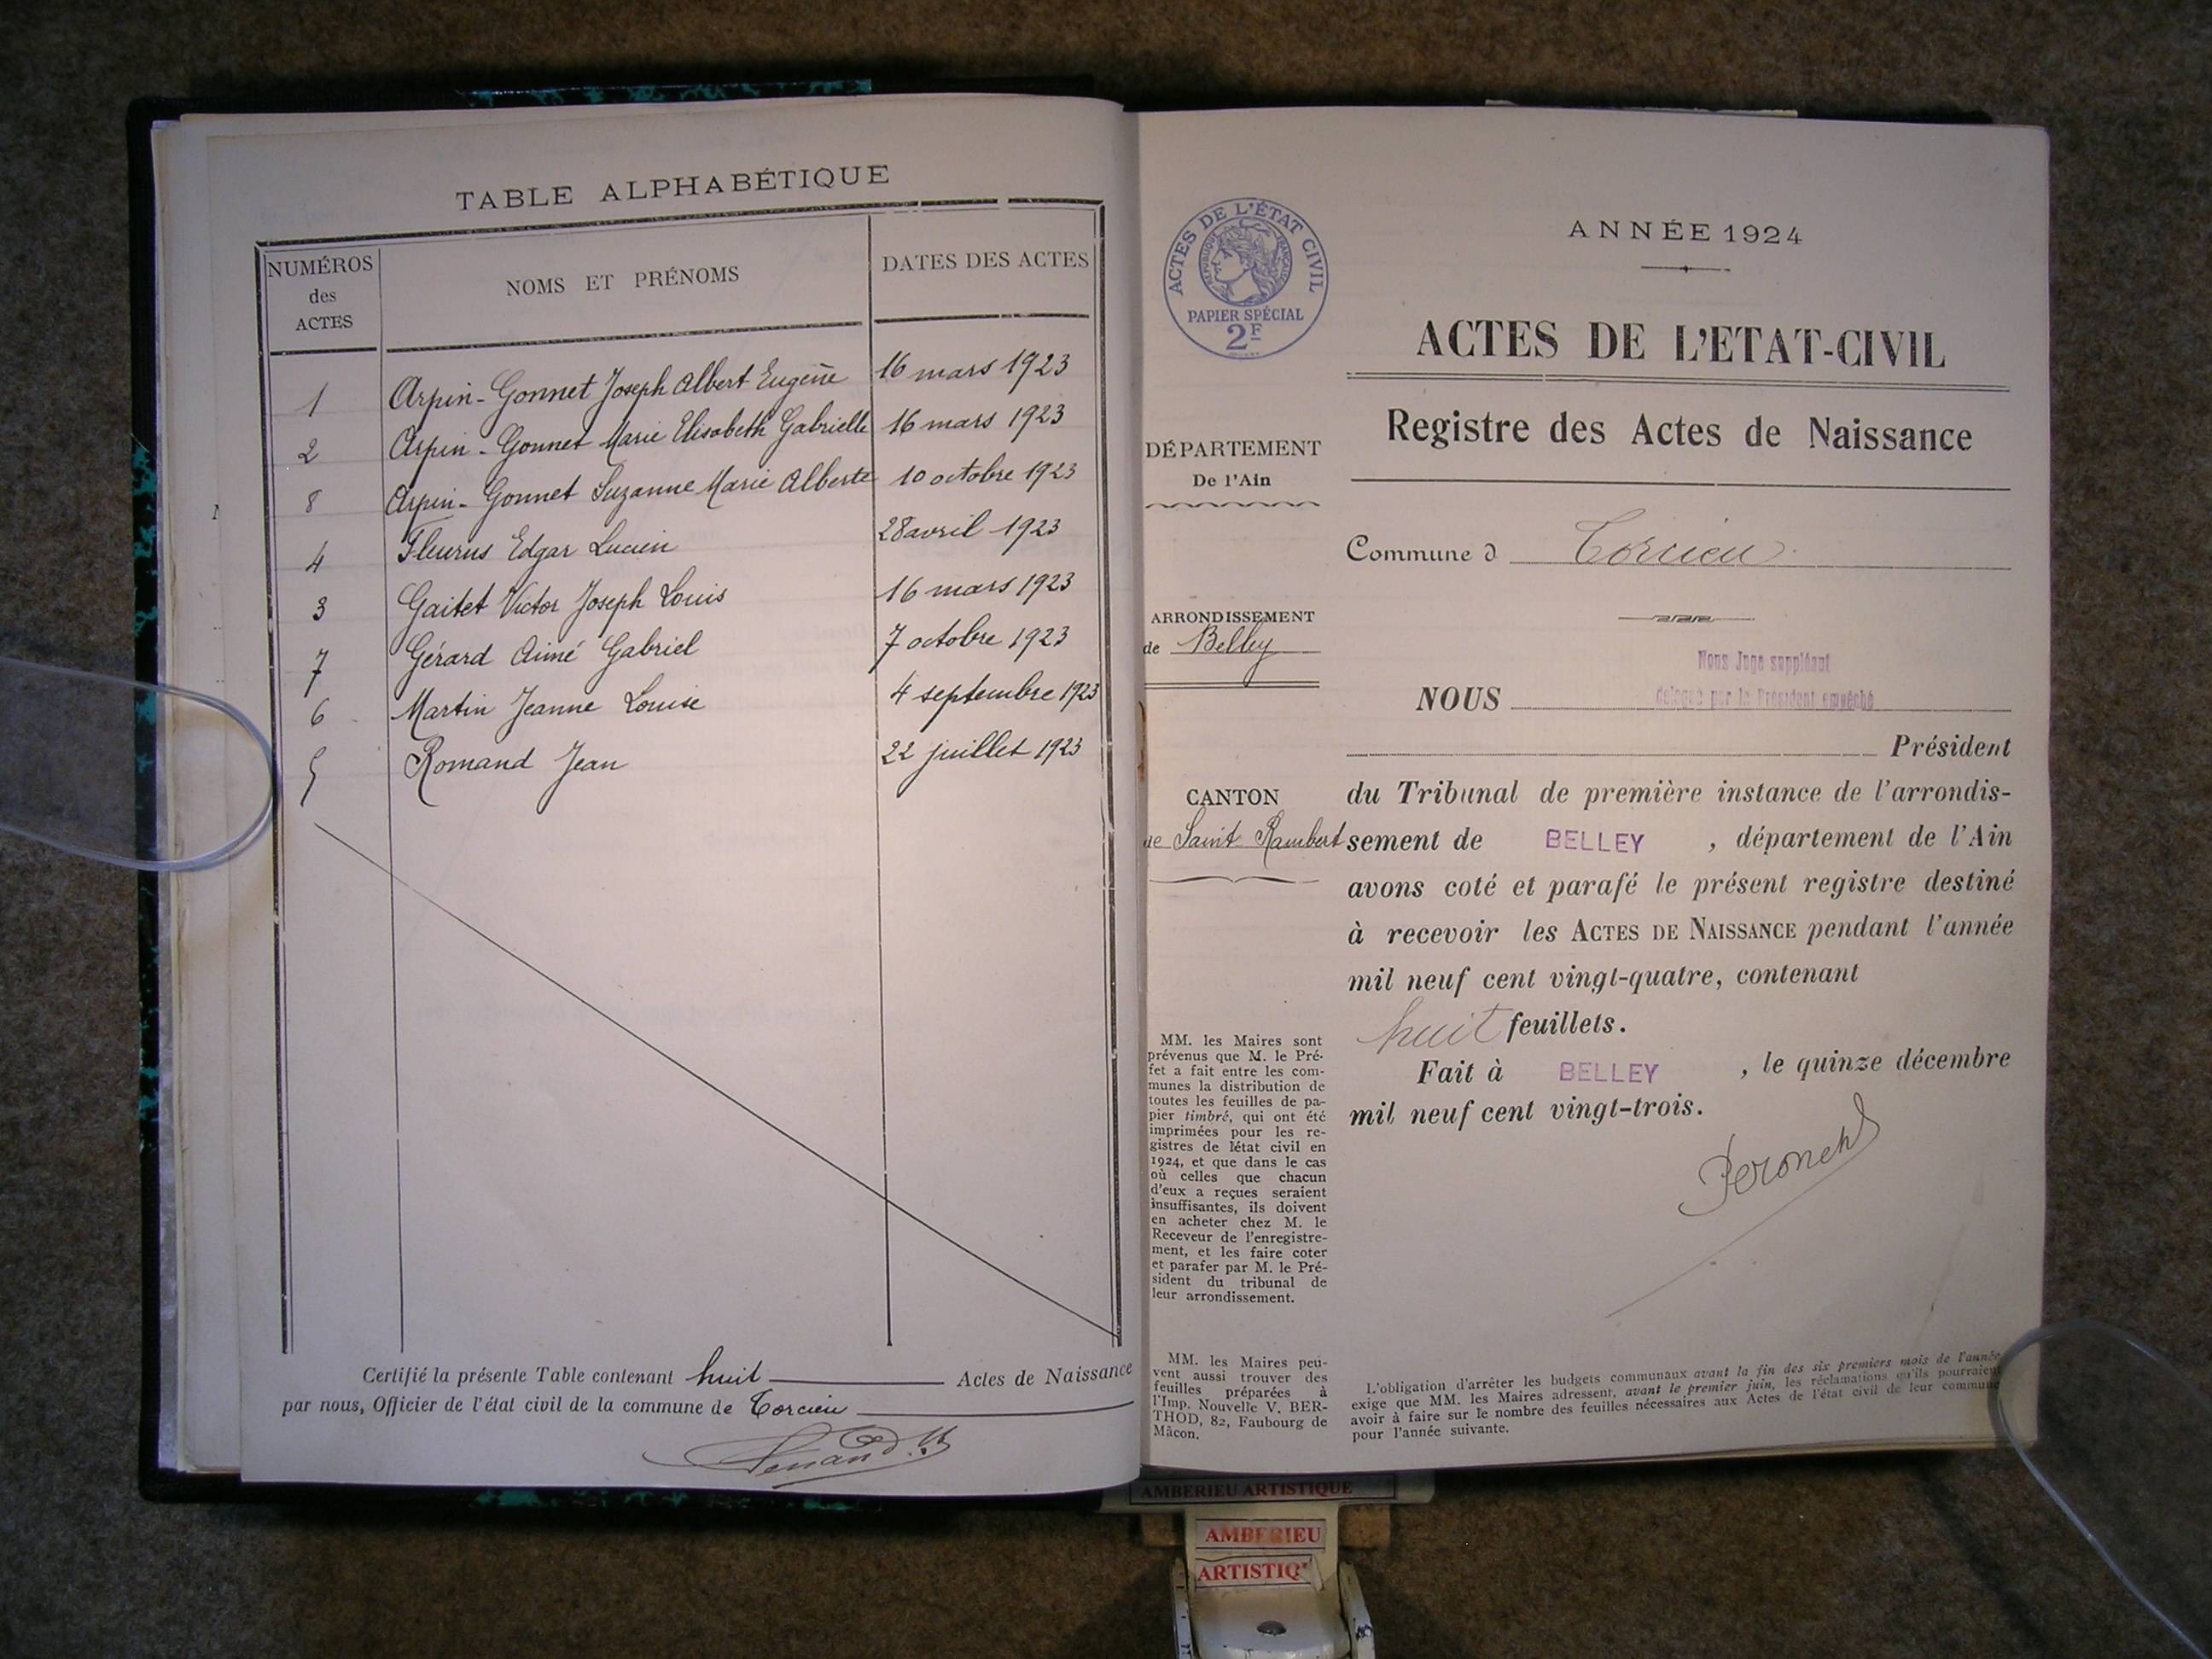 TABLE ALPHABÉTIQUE
NUMÉROS des ACTES
NOMS ET PRÉNOMS
DATES DES ACTES
1 Arpin-Gonnet Joseph Albert Eugène 16 mars 1923
2 Arpin-Gonnet Marie Elisabeth Gabrielle 16 mars 1923
8 Arpin-Gonnet Suzanne Marie Alberte 10 octobre 1923
4 Fleurus Edgar Lucien 28 avril 1923
3 Gaitet Victor Joseph Louis 16 mars 1923
7 Gérard Aimé Gabriel 7 octobre 1923
6 Martin Jeanne Louise 4 septembre 1923
5 Romand Jean 22 juillet 1923
Certifié la présente Table contenant huit Actes de Naissance
par nous, Officier de l'état civil de la commune de Torcieu
ACTES DE L'ÉTAT CIVIL
RÉPUBLIQUE FRANÇAISE
PAPIER SPÉCIAL
2F
DÉPARTEMENT
De l'Ain
ARRONDISSEMENT
de Belley
CANTON
de Saint Rambert
MM. les Maires sont
prévenus que M. le Pré-
fet a fait entre les com-
munes la distribution de
toutes les feuilles de pa-
pier timbré, qui ont été
imprimées pour les re-
gistres de l'état civil en
1924, et que dans le cas
où celles que chacun
d'eux a reçues seraient
insuffisantes, ils doivent
en acheter chez M. le
Receveur de l'enregistre-
ment, et les faire coter
et parafer par M. le Pré-
sident du tribunal de
leur arrondissement.
MM. les Maires peu-
vent aussi trouver des
feuilles préparées à
l'Imp. Nouvelle V. BER-
THOD, 82, Faubourg de
Mâcon.
ANNÉE 1924
ACTES DE L'ETAT-CIVIL
Registre des Actes de Naissance
Commune d Torcieu
Nous Juge suppléant
NOUS délégué par le Président empêché
Président
du Tribunal de première instance de l'arrondis-
sement de BELLEY, département de l'Ain
avons coté et parafé le présent registre destiné
à recevoir les ACTES DE NAISSANCE pendant l'année
mil neuf cent vingt-quatre, contenant
huit feuillets.
Fait à BELLEY, le quinze décembre
mil neuf cent vingt-trois.
L'obligation d'arrêter les budgets communaux avant la fin des six premiers mois de l'année
exige que MM. les Maires adressent, avant le premier juin, les réclamations qu'ils pourraient
avoir à faire sur le nombre des feuilles nécessaires aux Actes de l'état civil de leur commune
pour l'année suivante.
AMBERIEU ARTISTIQUE
AMBERIEU
ARTISTIQ